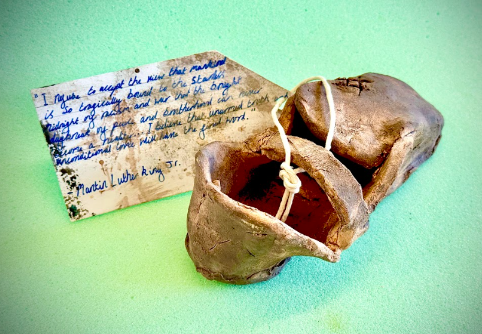 I refuse to accept the view that mankind
is so tragically bound to the starless
midnight of racism and war that the bright
daybreak of peace and brotherhood can never
become a reality. I believe that unarmed truth and
unconditional love will have the final word.
Martin Luther King Jr.